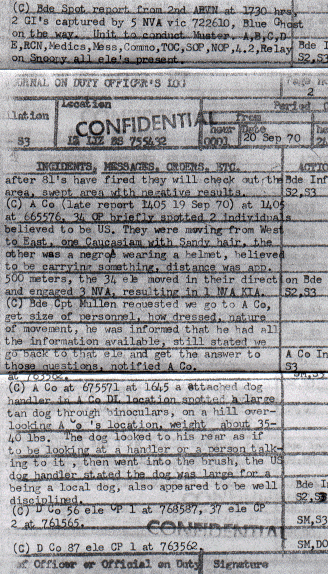 (C) Bde Spot report from 2nd ARVN at 1730 hrs,
2 GI's captured by 5 NVA vic 722610, Blue Ghost
on the way. Unit to conduct Muster. A,B,C,D
E,RCN,Medics,Mess,Commo,TOC,SOP,NOP,4.2,Relay
on Snoopy all ele's present.
Bde I
S2,S3
JOURNAL ON DUTY OFFICER'S LOG
2
Location
Period
CONFIDENTIAL
from
hour
Date
S3
12 LZ BS 755432
0001
20 Sep 70
INCIDENTS, MESSAGES, ORDERS, ETC.
ACTIO
after 81's have fired they will check out the
area, swept area with negative results.
Bde Inf
S2,S3
(C) A Co (late report 1405 19 Sep 70) at 1405
at 665576, 34 OP briefly spotted 2 individuals
believed to be US. They were moving from West
to East, one Caucasiam with Sandy hair, the
other was a negro wearing a helmet, believed
to be carrying something, distance was app.
500 meters, the 34 ele moved in their direction
and engaged 3 NVA, resulting in 1 NVA KIA.
on Bde
S2,S3
(C) Bde Cpt Mullen requested we go to A Co,
get size of personnel, how dressed, nature
of movement, he was informed that he had all
the information available, still stated we
go back to that ele and get the answer to
those questions, notified A Co.
A Co In
S3
at 763562.
SM,S3
(C) A Co at 675571 at 1645 a attached dog
handler in A Co DL location spotted a large
tan dog through binoculars, on a hill over-
looking A Co's location, weight about 35-
40 lbs. The dog looked to his rear as if
to be looking at a handler or a person talk-
ing to it , then went into the brush, the US
dog handler stated the dog was large for a
being a local dog, also appeared to be well
disciplined.
Bde I
S2,S3
(C) D Co 56 ele CP 1 at 768587, 37 ele CP
2 at 761565.
SM,S3
CONFIDENTIAL
(C) D Co 87 ele CP 1 at 763562,
SM,DO
of Officer or Official on Duty
Signature